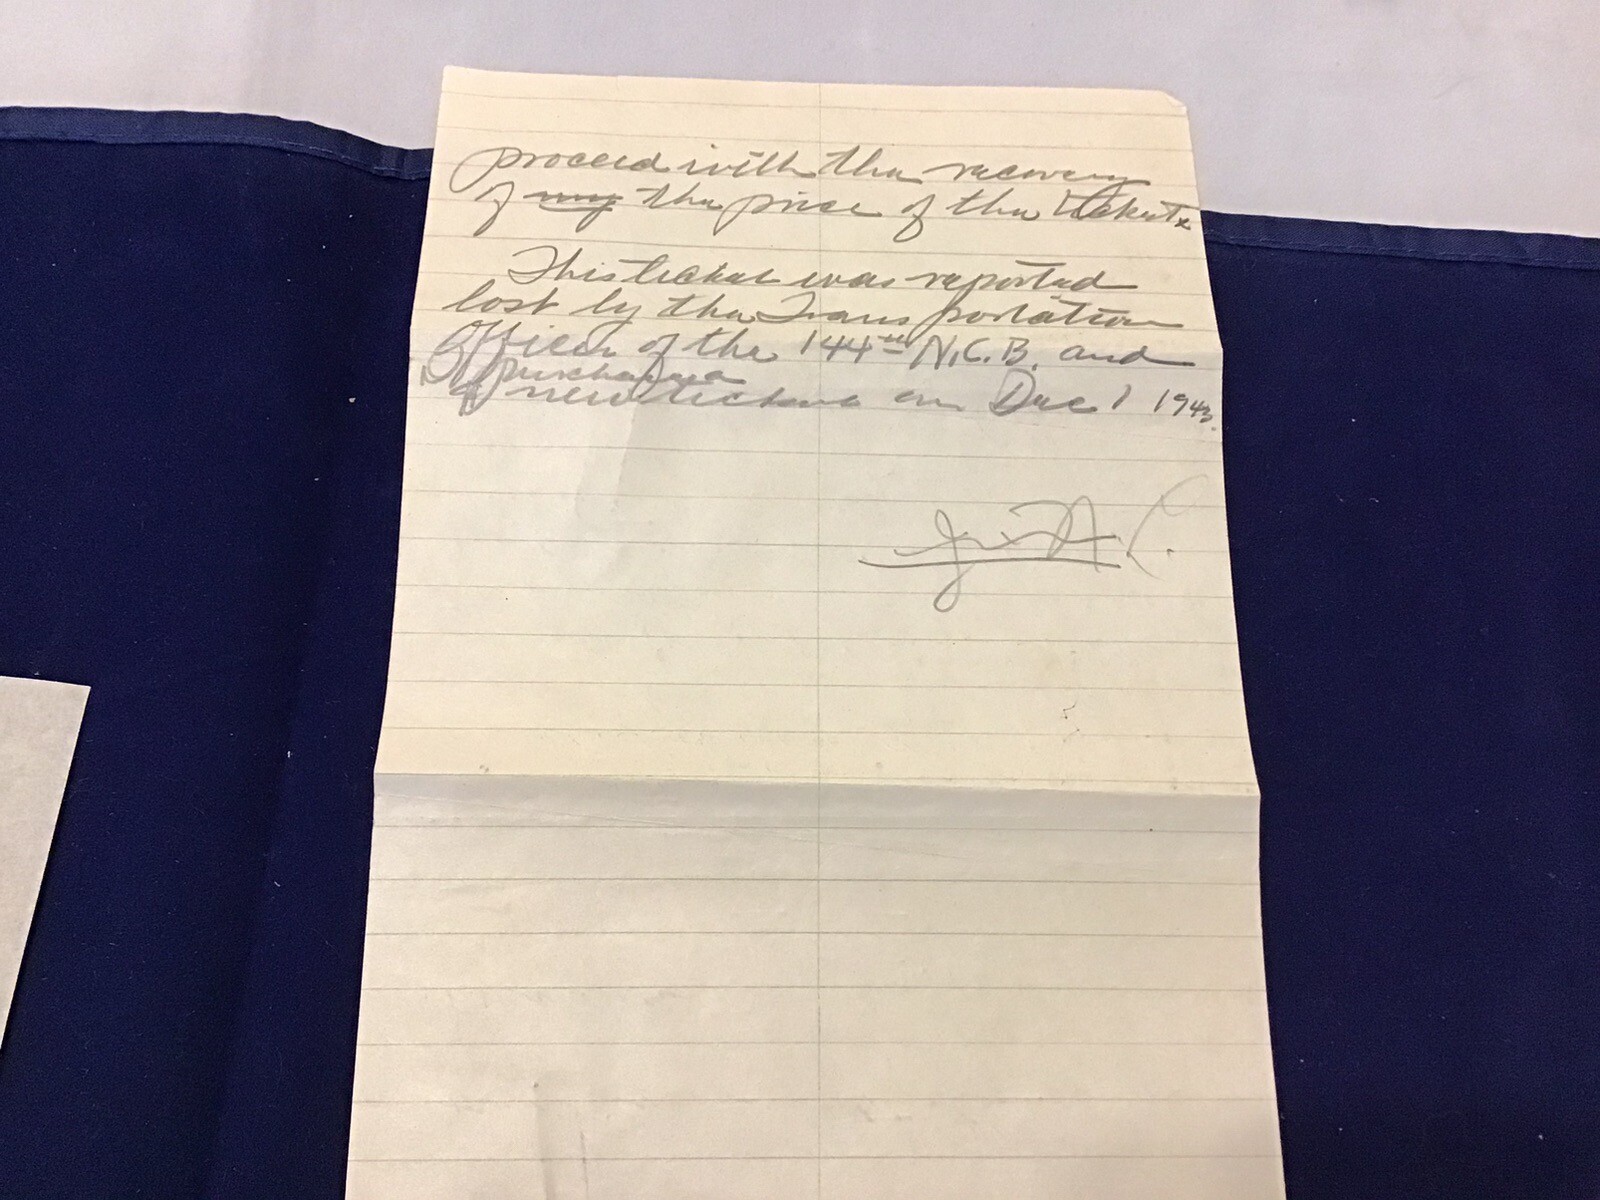 proceed with the recovery
of my the price of the ticket.
This ticket was reported
lost by the Transportation
Officer of the 144th N.C.B. and
purchased
new ticket on Dec 1 1943.